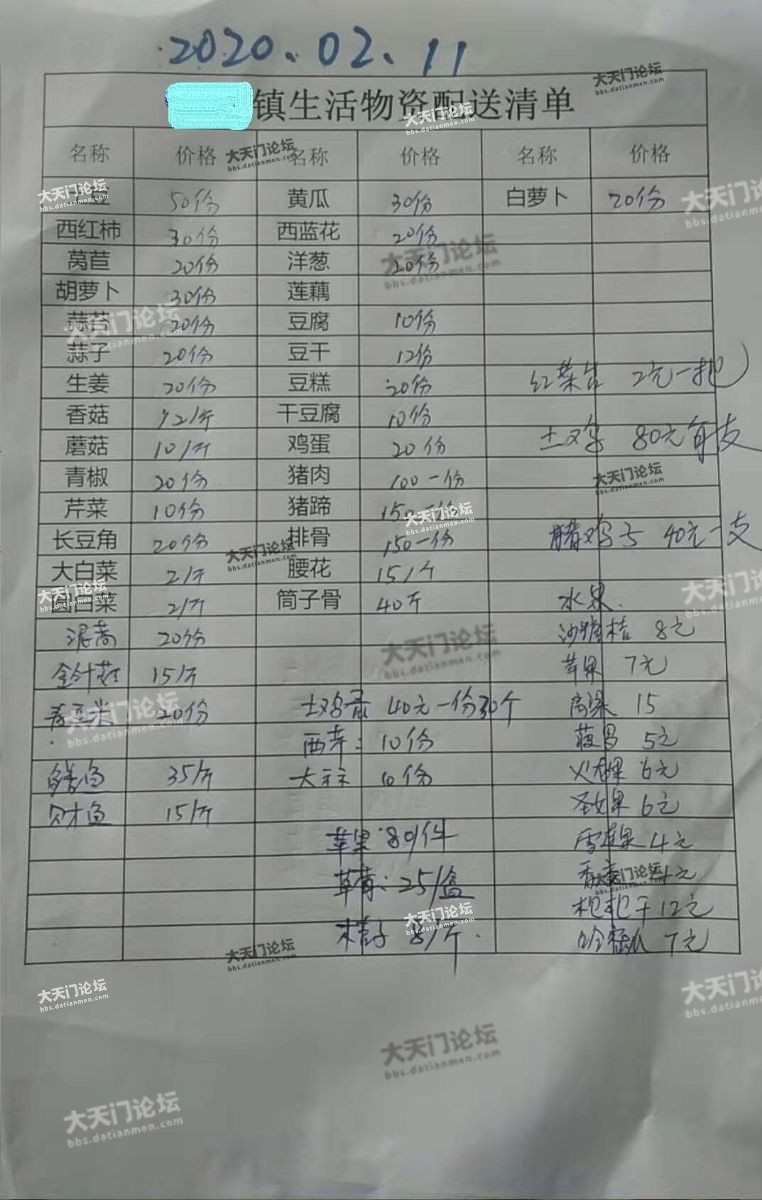 2020.02.11
镇生活物资配送清单
名称 价格 名称 价格 名称 价格
50份 黄瓜 30份 白萝卜 20份
西红柿 30份 西蓝花 20份
莴苣 20份 洋葱 20份
胡萝卜 30份 莲藕
蒜苔 20份 豆腐 10份
蒜子 20份 豆干 12份
生姜 20份 豆糕 20份 红菜苔 2元一把
香菇 12/斤 干豆腐 10份
蘑菇 10/斤 鸡蛋 20份 土鸡 80元每支
青椒 20份 猪肉 100一份
芹菜 10份 猪蹄 150一份
长豆角 20份 排骨 150一份 腊鸡子 40元一支
大白菜 2/斤 腰花 15/个
白菜 2/斤 筒子骨 40斤 水果
泥蒿 20份 沙糖桔 8元
金针菇 15/斤 苹果 7元
青豆米 20份 土鸡蛋 40元一份30个 15
西芹: 10份 菠萝 5元
鳝鱼 35/斤 大蒜 10份 火龙果 6元
财鱼 15/斤 圣女果 6元
苹果: 80/件 雪莲果 4元
草莓: 25/盒 香蕉 4元
桔子 8/斤 枇杷干 12元
哈密瓜 7元
大天门论坛
bbs.datianmen.com